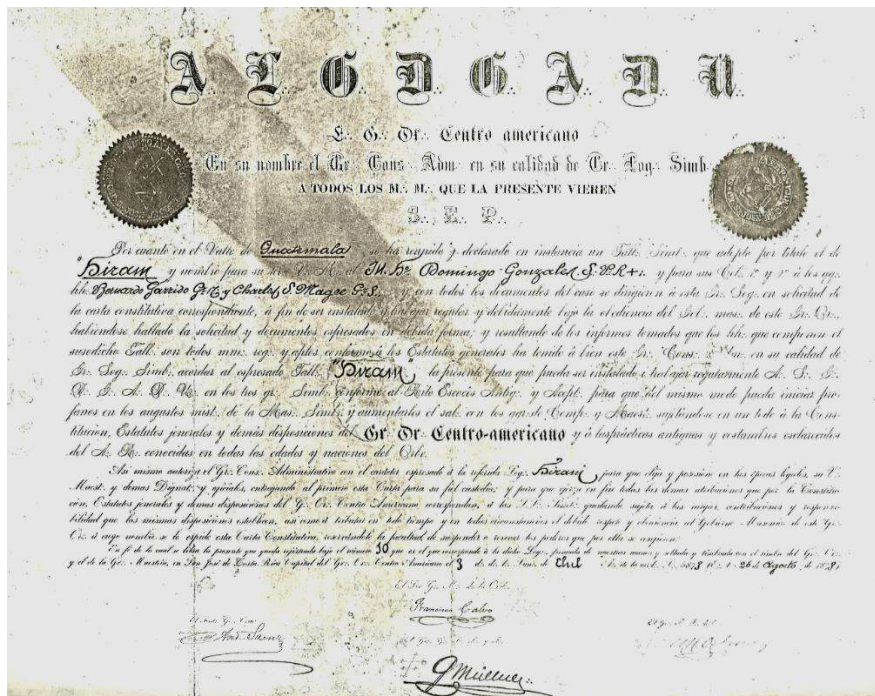 A∴ L∴ G∴ D∴ G∴ A∴ D∴ U∴
E∴ G∴ Or∴ Centro americano
En su nombre el Gr∴ Cons∴ Adm∴ en su calidad de Gr∴ Log∴ Simb∴
A TODOS LOS M∴ M∴ QUE LA PRESENTE VIEREN
S∴ E∴ P∴
Por cuanto en el Valle de Guatemala se ha reunido y declarado en instancia un Tall∴ Simb∴ que adopto por titulo el de
"Hiram" y nombró para su V∴ M∴ al M∴ h∴ Domingo Gonzalez y para sus Cel∴ 1º y 2º á los qq∴
hh∴ Bernardo Garrido y Charles S. Magee y con todos los documentos del caso se dirigieron á esta Gr∴ Log∴ en solicitud de
la carta constitutiva correspondiente, á fin de ser instalado y trabajar regular y debidamente bajo la obediencia del Gob∴ mas∴ de este Gr∴ Or∴,
habiéndose hallado la solicitud y documentos espresados en debida forma; y resultando de los informes tomados que los hh∴ que componen el
susodicho Tall∴ son todos mm∴ reg∴ y aptos conforme á los Estatutos generales ha tenido á bien este Gr∴ Cons∴ Adm∴ en su calidad de
Gr∴ Log∴ Simb∴ acordar al espresado Tall∴ "Hiram" la presente para que pueda ser instalado i trabajar regularmente A∴ L∴ G∴
D∴ G∴ A∴ D∴ U∴ en los tres gr∴ Simb∴ conforme al Rito Escocés Antig∴ y Acept∴ para que del mismo modo pueda iniciar pro-
fanos en los augustos mist∴ de la Mas∴ Simb∴ y aumentarles el sal∴ con los gr∴ de Comp∴ y Maest∴ sujetándose en un todo á la Cons-
titucion, Estatutos jenerales y demás disposiciones del Gr∴ Or∴ Centro-americano y á las prácticas antiguas y costumbres esclarecidas
del A∴ R∴ conocidas en todas las edades y naciones del Orbe.
Asi mismo autoriza el Gr∴ Cons∴ Administrativo con el carácter espresado á la referida Log∴ Hiram para que elija y posesione en las épocas legales, su V∴
Maest∴ y demas Dignat∴ y oficiales, entregando al primero esta Carta para su fiel custodia; y para que ejerza en fin todas las demas atribuciones que por la Constitu-
cion, Estatutos jenerales y demas disposiciones del G∴ Or∴ Centro Americano correspondan, á las LL∴ Simb∴ quedando sujeta á las cargas, contribuciones y responsa-
bilidad que las mismas disposiciones establecen, así como á tributar en todo tiempo y en todas circunstancias el debido respeto y obediencia al Gobierno Masonico de este Gr∴
Or∴ á cuyo nombre se le espide esta Carta Constitutiva, reservándole la facultad de suspender ó revocar los poderes que por ella se confieren.
En fé de lo cual se libra la presente que queda rejistrada bajo el número 30 que es el que corresponde á la dicha Log∴, firmada de nuestras manos y sellada y timbrada con el timbre del Gr∴ Or∴
y el de la Gr∴ Maestria, en San José de Costa Rica Capital del Gr∴ Or∴ Centro Americano el 3 d. de l. Luna de Elul 26 de Agosto de
Francisco Calvo
And. Saenz
G Müllner